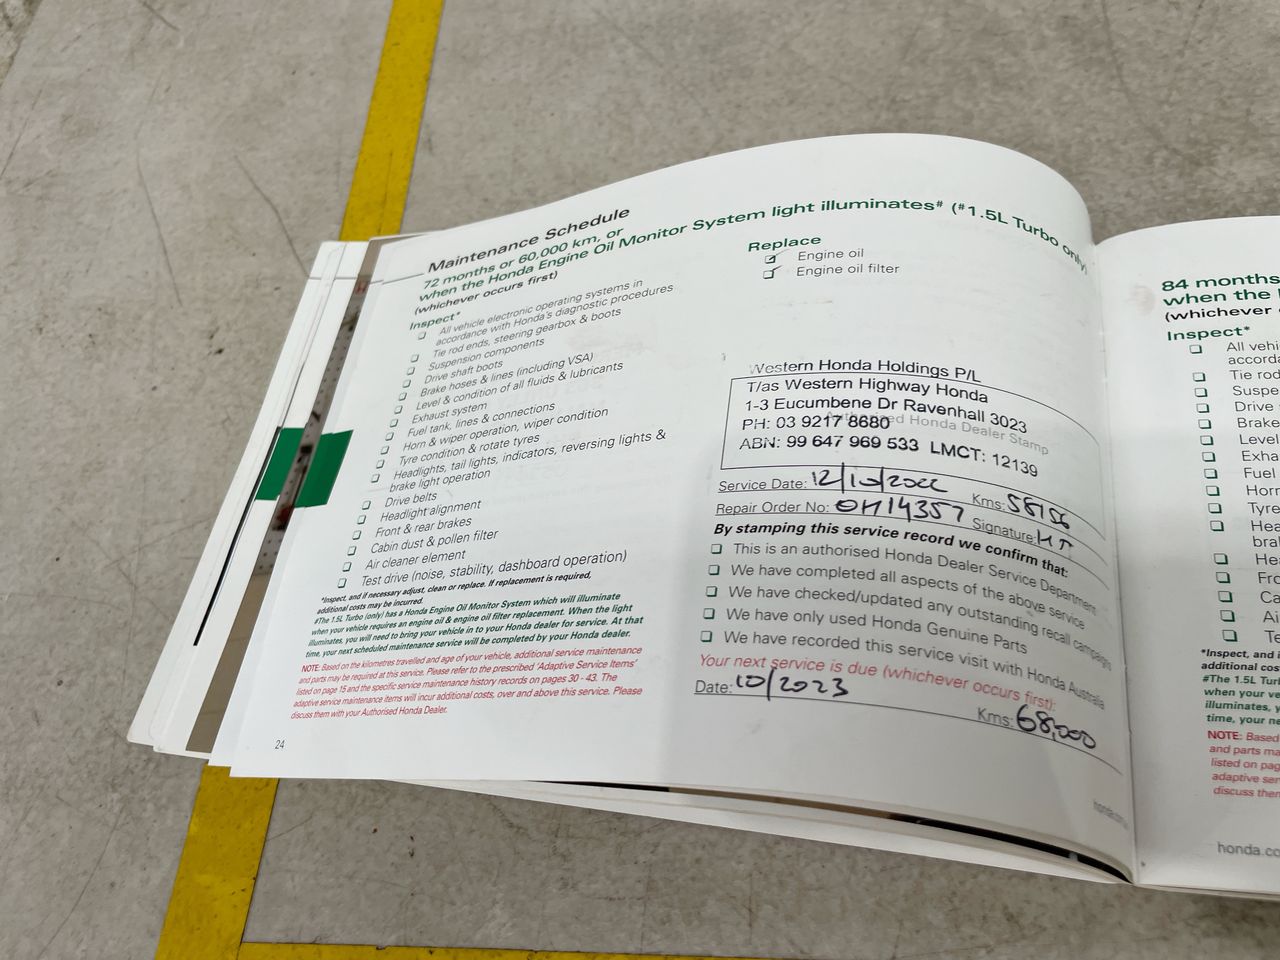 Maintenance Schedule
72 months or 60,000 km, or
when the Honda Engine Oil Monitor System light illuminates# (#1.5L Turbo only)
(whichever occurs first)
Inspect*
❑ All vehicle electronic operating systems in
accordance with Honda's diagnostic procedures
❑ Tie rod ends, steering gearbox & boots
❑ Suspension components
❑ Drive shaft boots
❑ Brake hoses & lines (including VSA)
❑ Level & condition of all fluids & lubricants
❑ Exhaust system
❑ Fuel tank, lines & connections
❑ Horn & wiper operation, wiper condition
❑ Tyre condition & rotate tyres
❑ Headlights, tail lights, indicators, reversing lights &
brake light operation
❑ Drive belts
❑ Headlight alignment
❑ Front & rear brakes
❑ Cabin dust & pollen filter
❑ Air cleaner element
❑ Test drive (noise, stability, dashboard operation)
*Inspect, and if necessary adjust, clean or replace. If replacement is required,
additional costs may be incurred.
#The 1.5L Turbo (only) has a Honda Engine Oil Monitor System which will illuminate
when your vehicle requires an engine oil & engine oil filter replacement. When the light
illuminates, you will need to bring your vehicle in to your Honda dealer for service. At that
time, your next scheduled maintenance service will be completed by your Honda dealer.
NOTE: Based on the kilometres travelled and age of your vehicle, additional service maintenance
and parts may be required at this service. Please refer to the prescribed 'Adaptive Service Items'
listed on page 15 and the specific service maintenance history records on pages 30 - 43. The
adaptive service maintenance items will incur additional costs, over and above this service. Please
discuss them with your Authorised Honda Dealer.
24
Replace
Engine oil
Engine oil filter
Western Honda Holdings P/L
T/as Western Highway Honda
1-3 Eucumbene Dr Ravenhall 3023
PH: 03 9217 8680
Authorised Honda Dealer Stamp
ABN: 99 647 969 533 LMCT: 12139
Service Date: 12/10/2022 Kms: 58156
Repair Order No: OH14357 Signature: HT
By stamping this service record we confirm that:
❑ This is an authorised Honda Dealer Service Department
❑ We have completed all aspects of the above service
❑ We have checked/updated any outstanding recall campaigns
❑ We have only used Honda Genuine Parts
❑ We have recorded this service visit with Honda Australia
Your next service is due (whichever occurs first):
Date: 10/2023 Kms: 68,000
84 months
when the
(whichever
Inspect*
❑ All vehi
accorda
❑ Tie rod
❑ Suspe
❑ Drive
❑ Brake
❑ Level
❑ Exha
❑ Fuel
❑ Horr
❑ Tyre
❑ Hea
bral
❑ He
❑ Fro
❑ Ca
❑ Ai
❑ Te
*Inspect, and i
additional cos
#The 1.5L Turb
when your ve
illuminates, y
time, your ne
NOTE: Based
and parts ma
listed on pag
adaptive ser
discuss then
honda.co